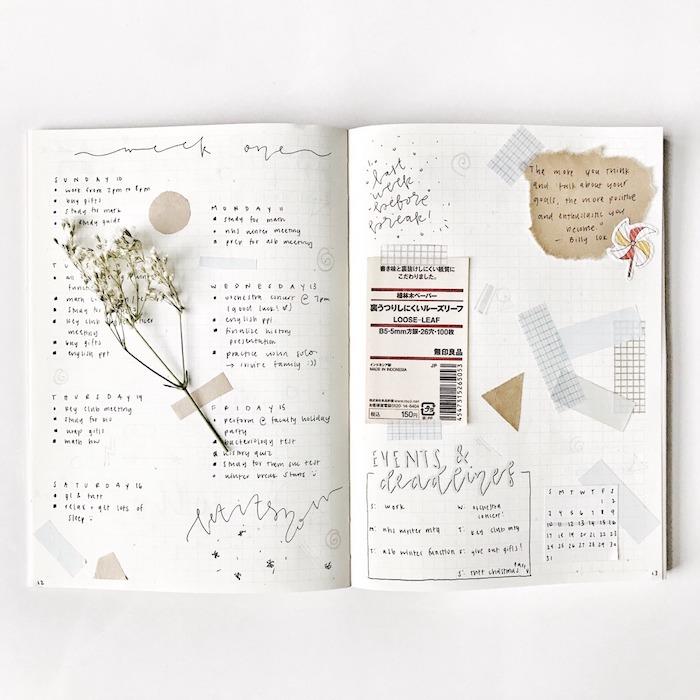 week one
SUNDAY 10
work from 2pm to 8pm
buy gifts
study for math
study guide
MONDAY 11
study for math
nhs winter meeting
prep for asb meeting
math
study for
key club
meeting
buy gifts
english ppt
WEDNESDAY 13
orchestra concert @ 7pm
(good luck!
english ppt
finalize history
presentation
practice violin solo
→ invite family :))
THURSDAY 14
key club meeting
study for
wrap gifts
math hw
FRIDAY 15
perform @ faculty holiday
party
bacteriology test
history quiz
study for
winter break starts
SATURDAY 16
relax + get lots of
sleep :)
let it snow
last
week
before
break!
The more you think
and talk about your
goals, the more positive
and enthusiastic you
become."
書き味と裏抜けしにくい紙質に
こだわりました。
植林木ペーパー
裏うつりしにくいルーズリーフ
LOOSE-LEAF
B5・5mm方眼・26穴・100枚
無印良品
インドネシア製
MADE IN INDONESIA
JP
税込 150円
4547315265053
EVENTS &
deadlines
S: work
M: nhs winter mtg
T: asb winter function
W: orchestra
concert!
T: key club mtg
F: give out gifts!
S M T W T F S
1 2
3 4 5 6 7 8 9
10 11 12 13 14 15 16
17 18 19 20 21 22 23
24 25 26 27 28 29 30
31